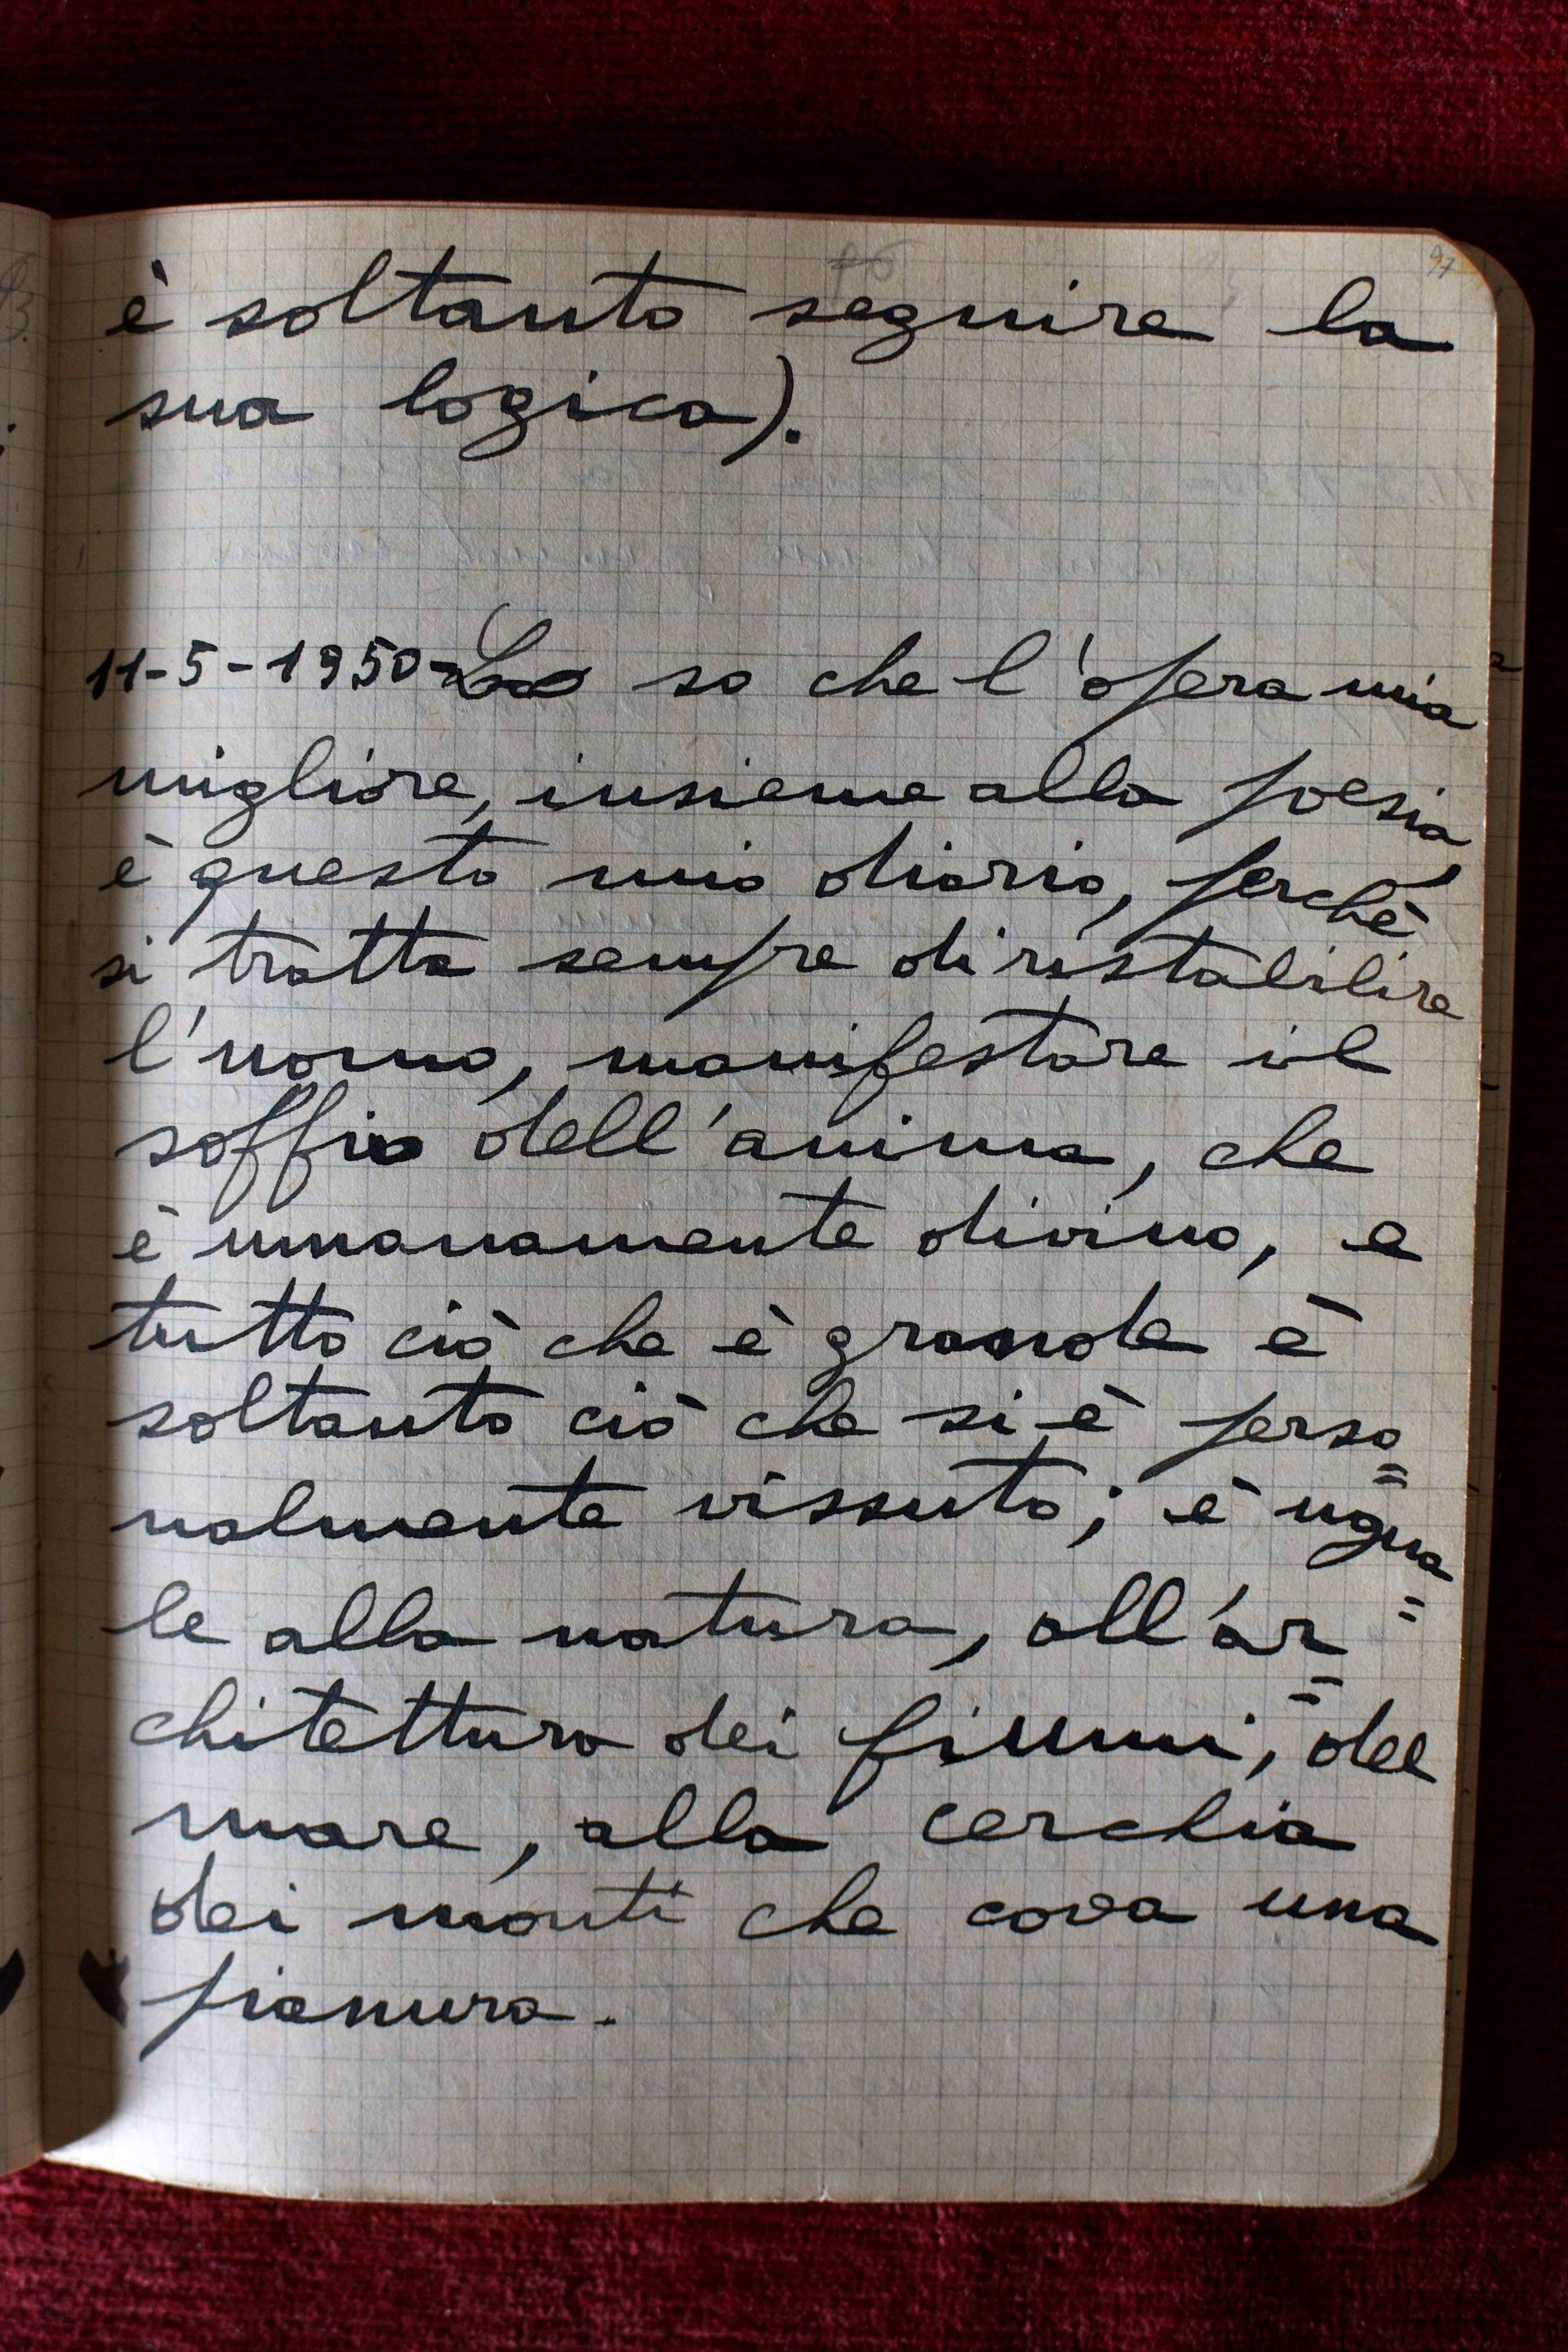 97
è soltanto seguire la
sua logica).
11-5-1950-Lo so che l'opera mia
migliore, insieme alla poesia,
è questo mio diario, perchè
si tratta sempre di ristabilire
l'uomo, manifestare il
soffio dell'anima, che
è umanamente divino, e
tutto ciò che è grande è
soltanto ciò che si è perso=
nalmente vissuto; è ugua=
le alla natura, all'ar=
chitettura dei fiumi, del
mare, alla cerchia
dei monti che cova una
pianura.